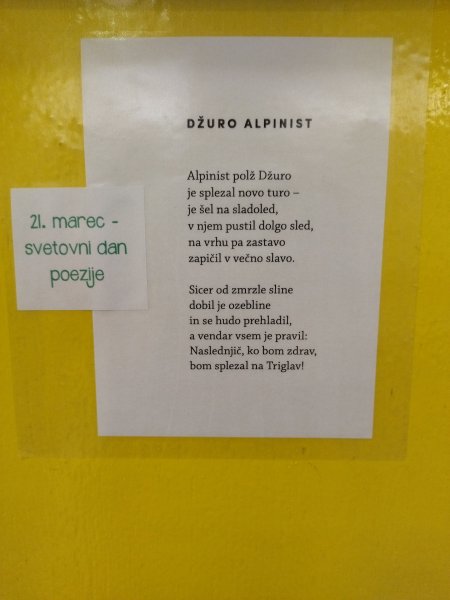 DŽURO ALPINIST
Alpinist polž Džuro
je splezal novo turo –
je šel na sladoled,
v njem pustil dolgo sled,
na vrhu pa zastavo
zapičil v večno slavo.
Sicer od zmrzle sline
dobil je ozebline
in se hudo prehladil,
a vendar vsem je pravil:
Naslednjič, ko bom zdrav,
bom splezal na Triglav!
21. marec -
svetovni dan
poezije